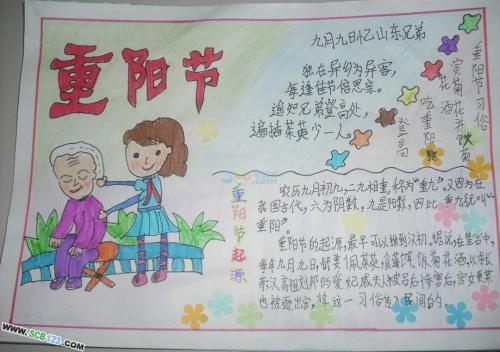 重阳节
九月九日忆山东兄弟
独在异乡为异客，
每逢佳节倍思亲。
遥知兄弟登高处，
遍插茱萸少一人。
重阳节习俗
赏菊花并饮菊
花酒
吃重阳糕
登高
重阳节起源
农历九月初九，二九相重，称为"重九"。又因为在
我国古代，六为阴数，九是阳数，因此，重九就叫"
重阳"。
重阳节的起源，最早可以推到汉初。据说，在皇宫中，
每年九月九日，都要佩茱萸，食蓬饵，饮菊花酒，以求长
寿汉高祖刘邦的爱妃戚夫人被吕后惨害后，宫女贾某
也被逐出宫，将这一习俗传入民间的
www.SCB123.com